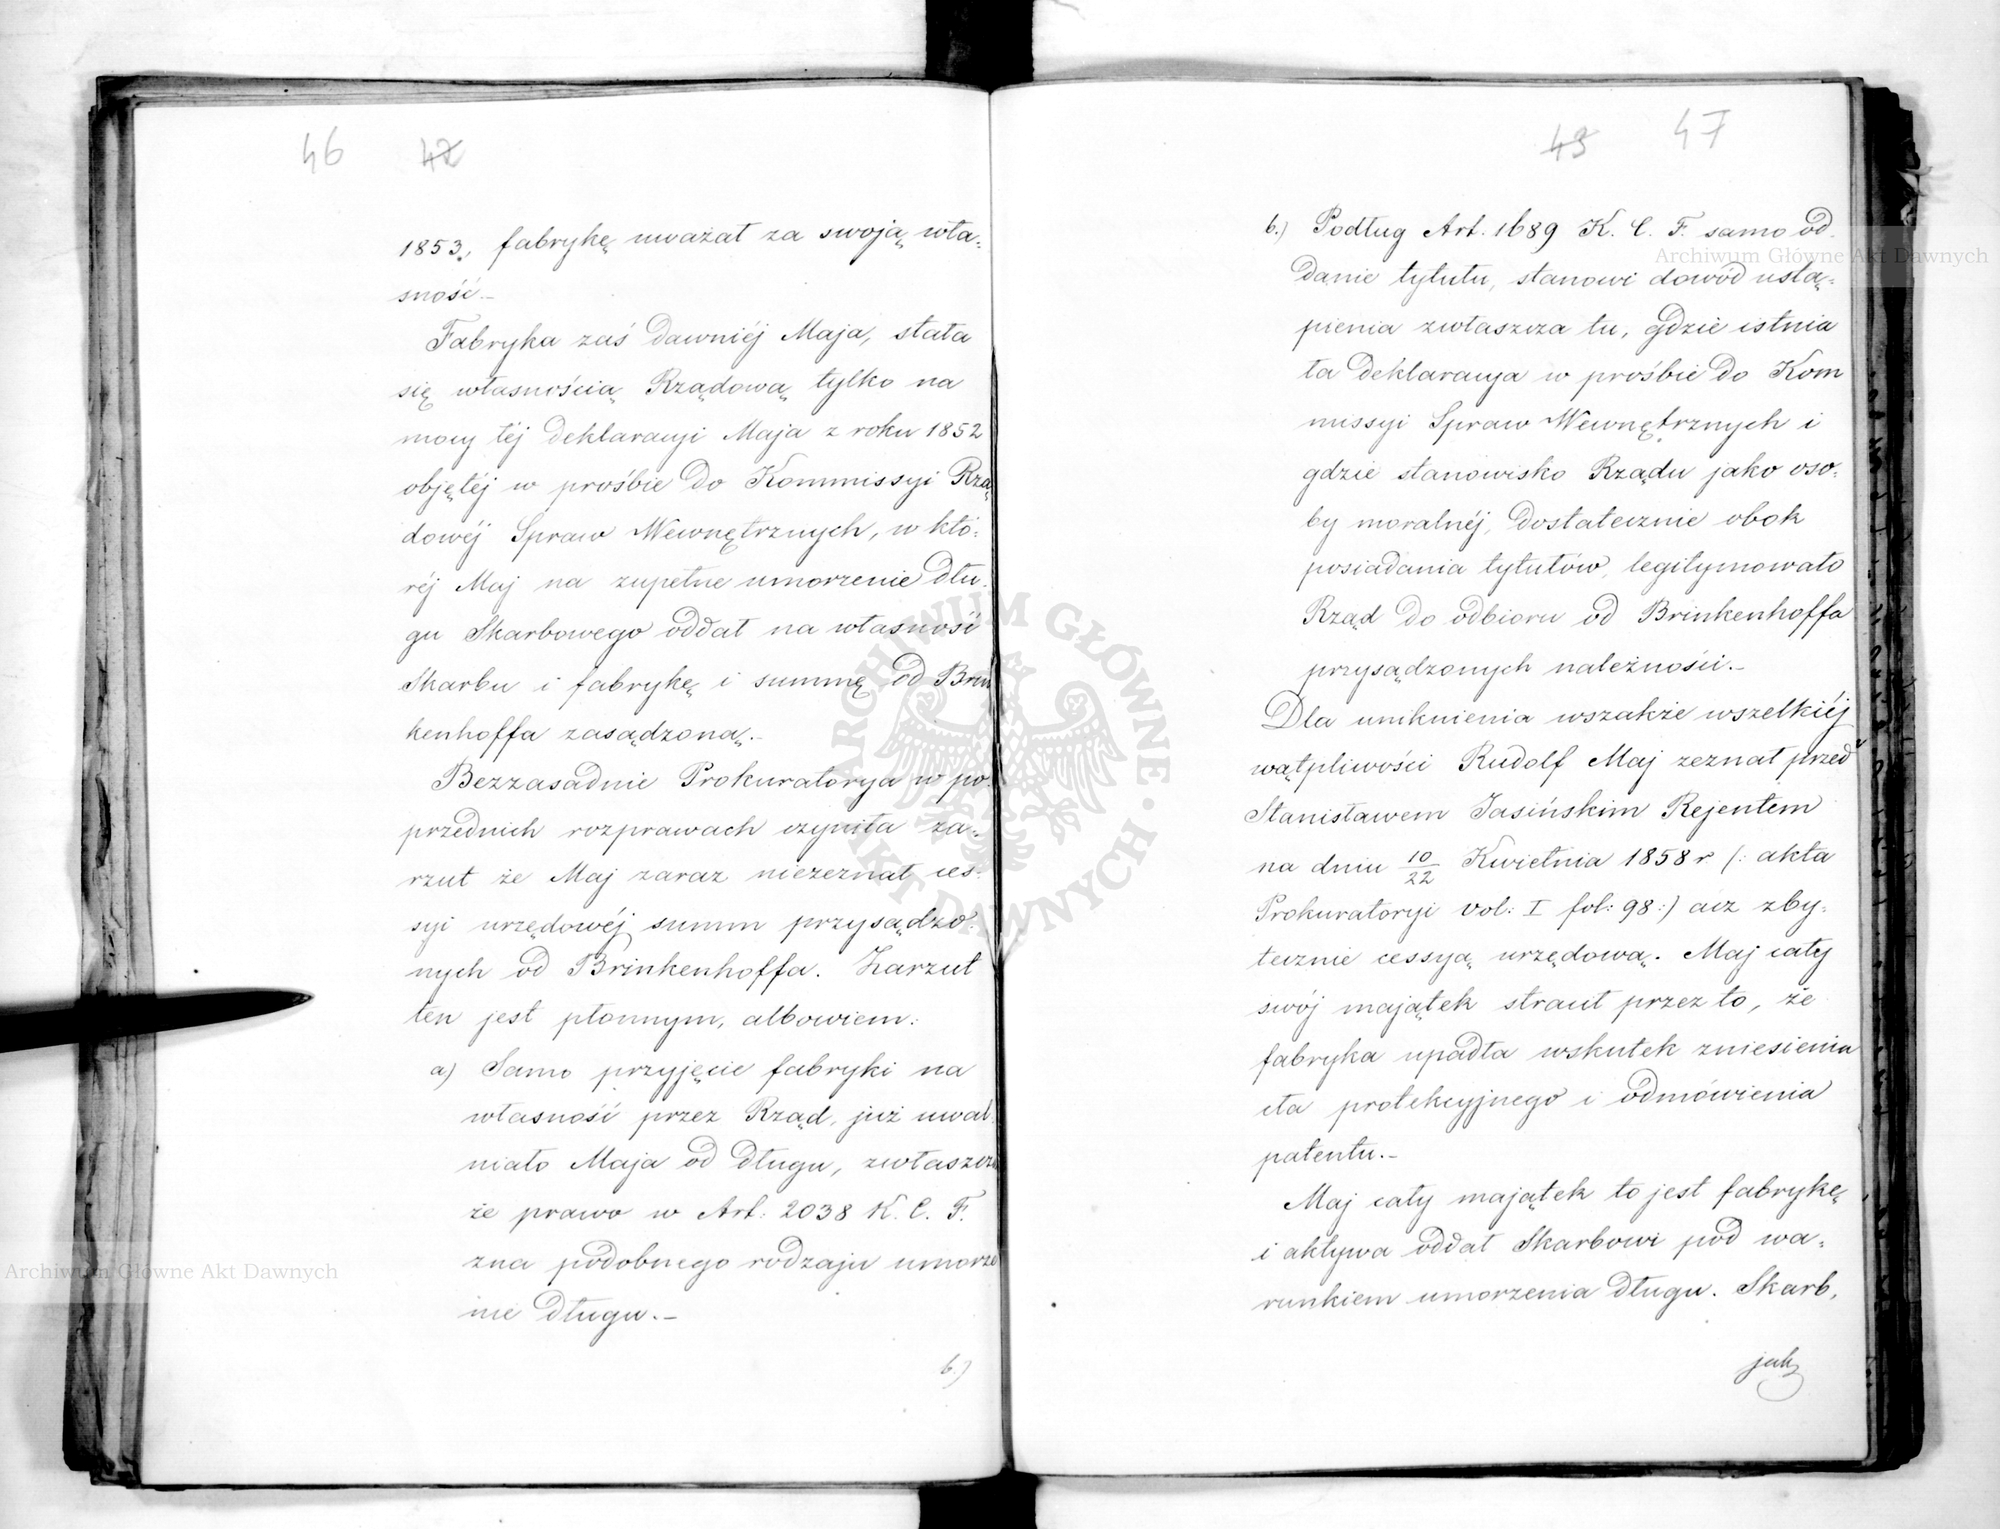 46 42
1853., fabrykę uważał za swoją wła-
sność.—
Fabryka zaś dawniéj Maja, stała
się własnością Rządową tylko na
mocy téj deklaracyi Maja z roku 1852
objętéj w prośbie do Kommissyi Rzą
dowéj Spraw Wewnętrznych, w któ-
réj Maj na zupełne umorzenie dłu-
gu Skarbowego oddał na własność
Skarbu i fabrykę i summę od Brin
kenhoffa zasądzoną.—
Bezzasadnie Prokuratorya w po-
przednich rozprawach czyniła za-
rzut że Maj zaraz niezeznał ces-
syi urzędowéj summ przysądzo-
nych od Brinkenhoffa. Zarzut
ten jest płonnym, albowiem:
a) Samo przyjęcie fabryki na
własność przez Rząd, już uwal-
niało Maja od długu, zwłaszcza
że prawo w Art: 2038 K. C. F.
zna podobnego rodzaju umorze
nie długu.—
b.)
43 47
b.) Podług Art. 1689 K. C. F. samo od-
danie tytułu, stanowi dowód ustą-
pienia zwłaszcza tu, gdzie istnia
ła deklaracya w prośbie do Kom
missyi Spraw Wewnętrznych i
gdzie stanowisko Rządu jako oso-
by moralnéj, dostatecznie obok
posiadania tytułów, legitymowało
Rząd do odbioru od Brinkenhoffa
przysądzonych należności.—
Dla uniknienia wszakże wszelkiéj
wątpliwości Rudolf Maj zeznał przed
Stanisławem Jasińskim Rejentem
na dniu 10/22 Kwietnia 1858 r (: akta
Prokuratoryi vol: I fol: 98:) acz zby-
tecznie cessyą urzędową. Maj cały
swój majątek stracił przez to, że
fabryka upadła wskutek zniesienia
cła protekcyjnego i odmówienia
patentu.—
Maj cały majątek to jest fabrykę
i aktywa oddał Skarbowi pod wa-
runkiem umorzenia długu. Skarb,
jak
Archiwum Główne Akt Dawnych
Archiwum Główne Akt Dawnych
ARCHIWUM GŁÓWNE AKT DAWNYCH